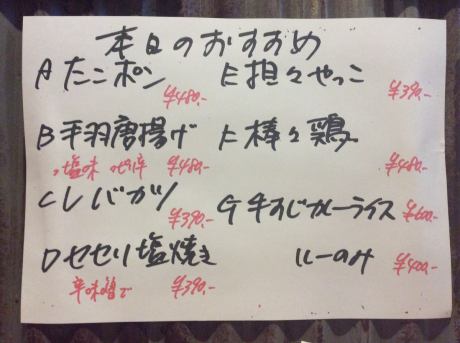 本日のおすすめ
A たこポン ¥480,-
B 手羽唐揚げ ¥480,-
・塩味 ・ピリ辛
C レバカツ ¥390,-
D セセリ塩焼き
辛味噌で ¥390,-
E 担々やっこ ¥390,-
F 棒々鶏 ¥480,-
G 牛すじカレーライス ¥600,-
ルーのみ ¥400,-